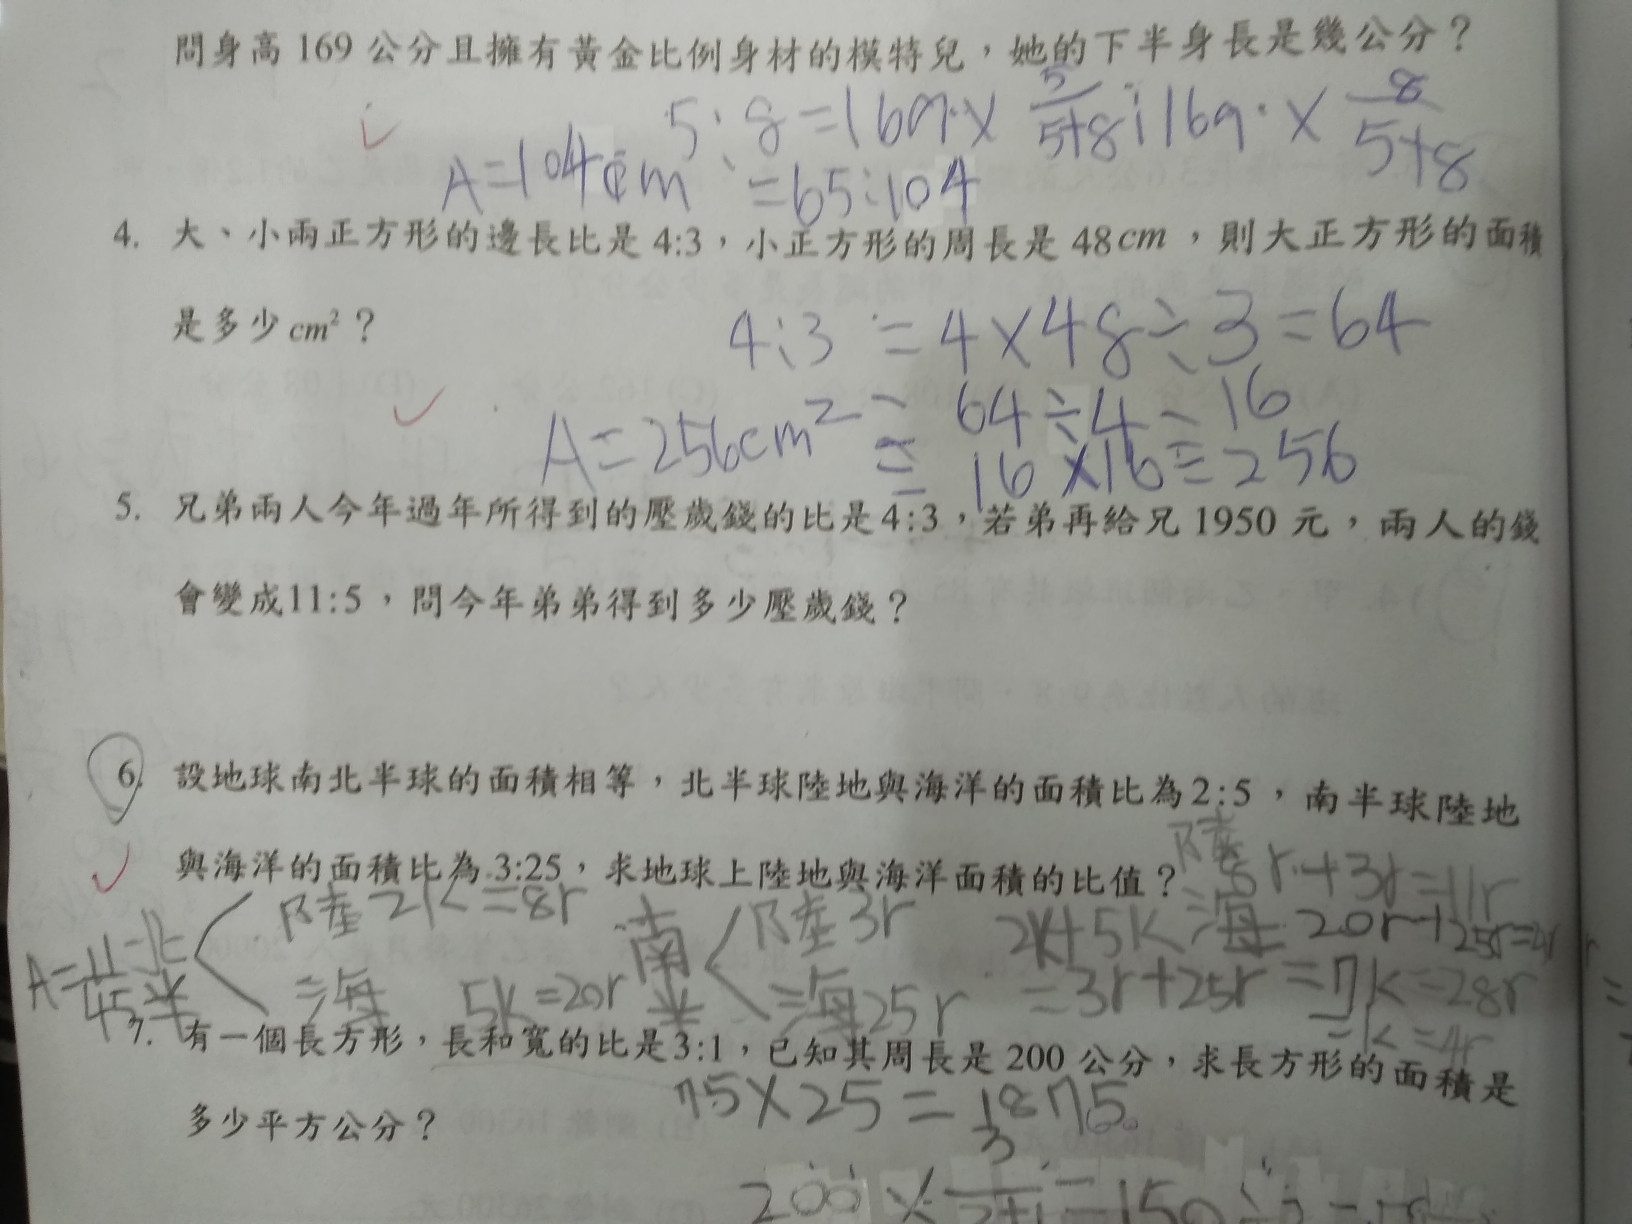 問身高 169 公分且擁有黃金比例身材的模特兒，她的下半身長是幾公分？
5:8=169×5/5+8:169×8/5+8
A=104cm =65:104
4. 大、小兩正方形的邊長比是 4:3，小正方形的周長是 48cm，則大正方形的面積
是多少 cm²？
4:3 = 4×48÷3=64
= 64÷4=16
A=256cm² = 16×16=256
5. 兄弟兩人今年過年所得到的壓歲錢的比是 4:3，若弟再給兄 1950 元，兩人的錢
會變成11:5，問今年弟弟得到多少壓歲錢？
6. 設地球南北半球的面積相等，北半球陸地與海洋的面積比為2:5，南半球陸地
與海洋的面積比為 3:25，求地球上陸地與海洋面積的比值？
陸 8r+3r=11r
陸 2k=8r 陸 3r 2k+5k 海 20r+25r
A=11/45 北半 海 5k=20r 南半 海25r =3r+25r =7k=28r
=k=4r
7. 有一個長方形，長和寬的比是3:1，已知其周長是 200 公分，求長方形的面積是
多少平方公分？
75×25=1875
200×3/3+1=150